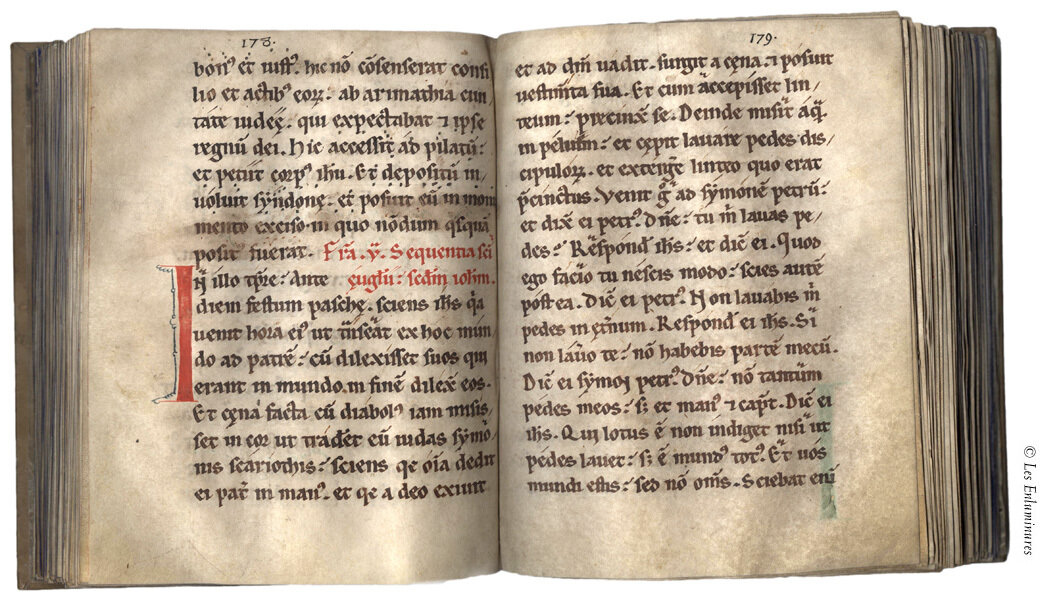 178.
bon⁹ et iust⁹. hic nō cōsenserat consi
lio et actib⁹ eoꝝ. ab arimathia ciui
tate iudeę. qui expectabat ⁊ ipse
regnū dei. Hic accessit ad pilatū:
et petiit corp⁹ ihu. Et depositū in/
uoluit syndone. et posuit eū in moni
mento exciso. in quo nōdum qsquā
posit⁹ fuerat. Fr̄a. v. Sequentia sc̄i
In illo tp̄re: Ante ęuglii: scdm iohm.
diem festum paschę. sciens ihs qa
uenit hora ei⁹ ut tnseat ex hoc mun/
do ad patrē: cū dilexisset suos qui
erant in mundo. in finē dilexͭ eos.
Et cęna facta cū diabol⁹ iam misis/
set in cor ut tradet eū iudas symo/
nis scariothis: sciens qe om̄ia dedit
ei pat in man⁹. et qe a deo exiuit
179.
et ad dm̄ uadit. surgit a cęna. ⁊ posuit
uestim̄ta sua. Et cum accepisset lin/
teum: precinxͭ se. Deinde misit aq̄
in peluim: et cępit lauare pedes dis/
cipuloꝝ. et extergͤe linteo quo erat
p̄cinctus. Venit gͦ ad symonē petrū:
et dixͭ ei petr⁹. Dn̄e: tu m̄ lauas pe/
des: Respond̄ ihs: et dic̄ ei. Quod
ego facio tu nescis modo: scies autē
postea. Dic̄ ei petr⁹. Non lauabis m̄
pedes in ęt̄num. Respond̄ ei ihs. Si
non lauo te: nō habebis partē mecū.
Dic̄ ei symon petr⁹. Dn̄e: nō tantum
pedes meos: sꝫ et man⁹ ⁊ capt̄. Dic̄ ei
ihs. Qui lotus ē non indiget nisi ut
pedes lauet: sꝫ ē mund⁹ tot⁹. Et uos
mundi estis: sed nō om̄s. Sciebat eni
© Les Enluminures